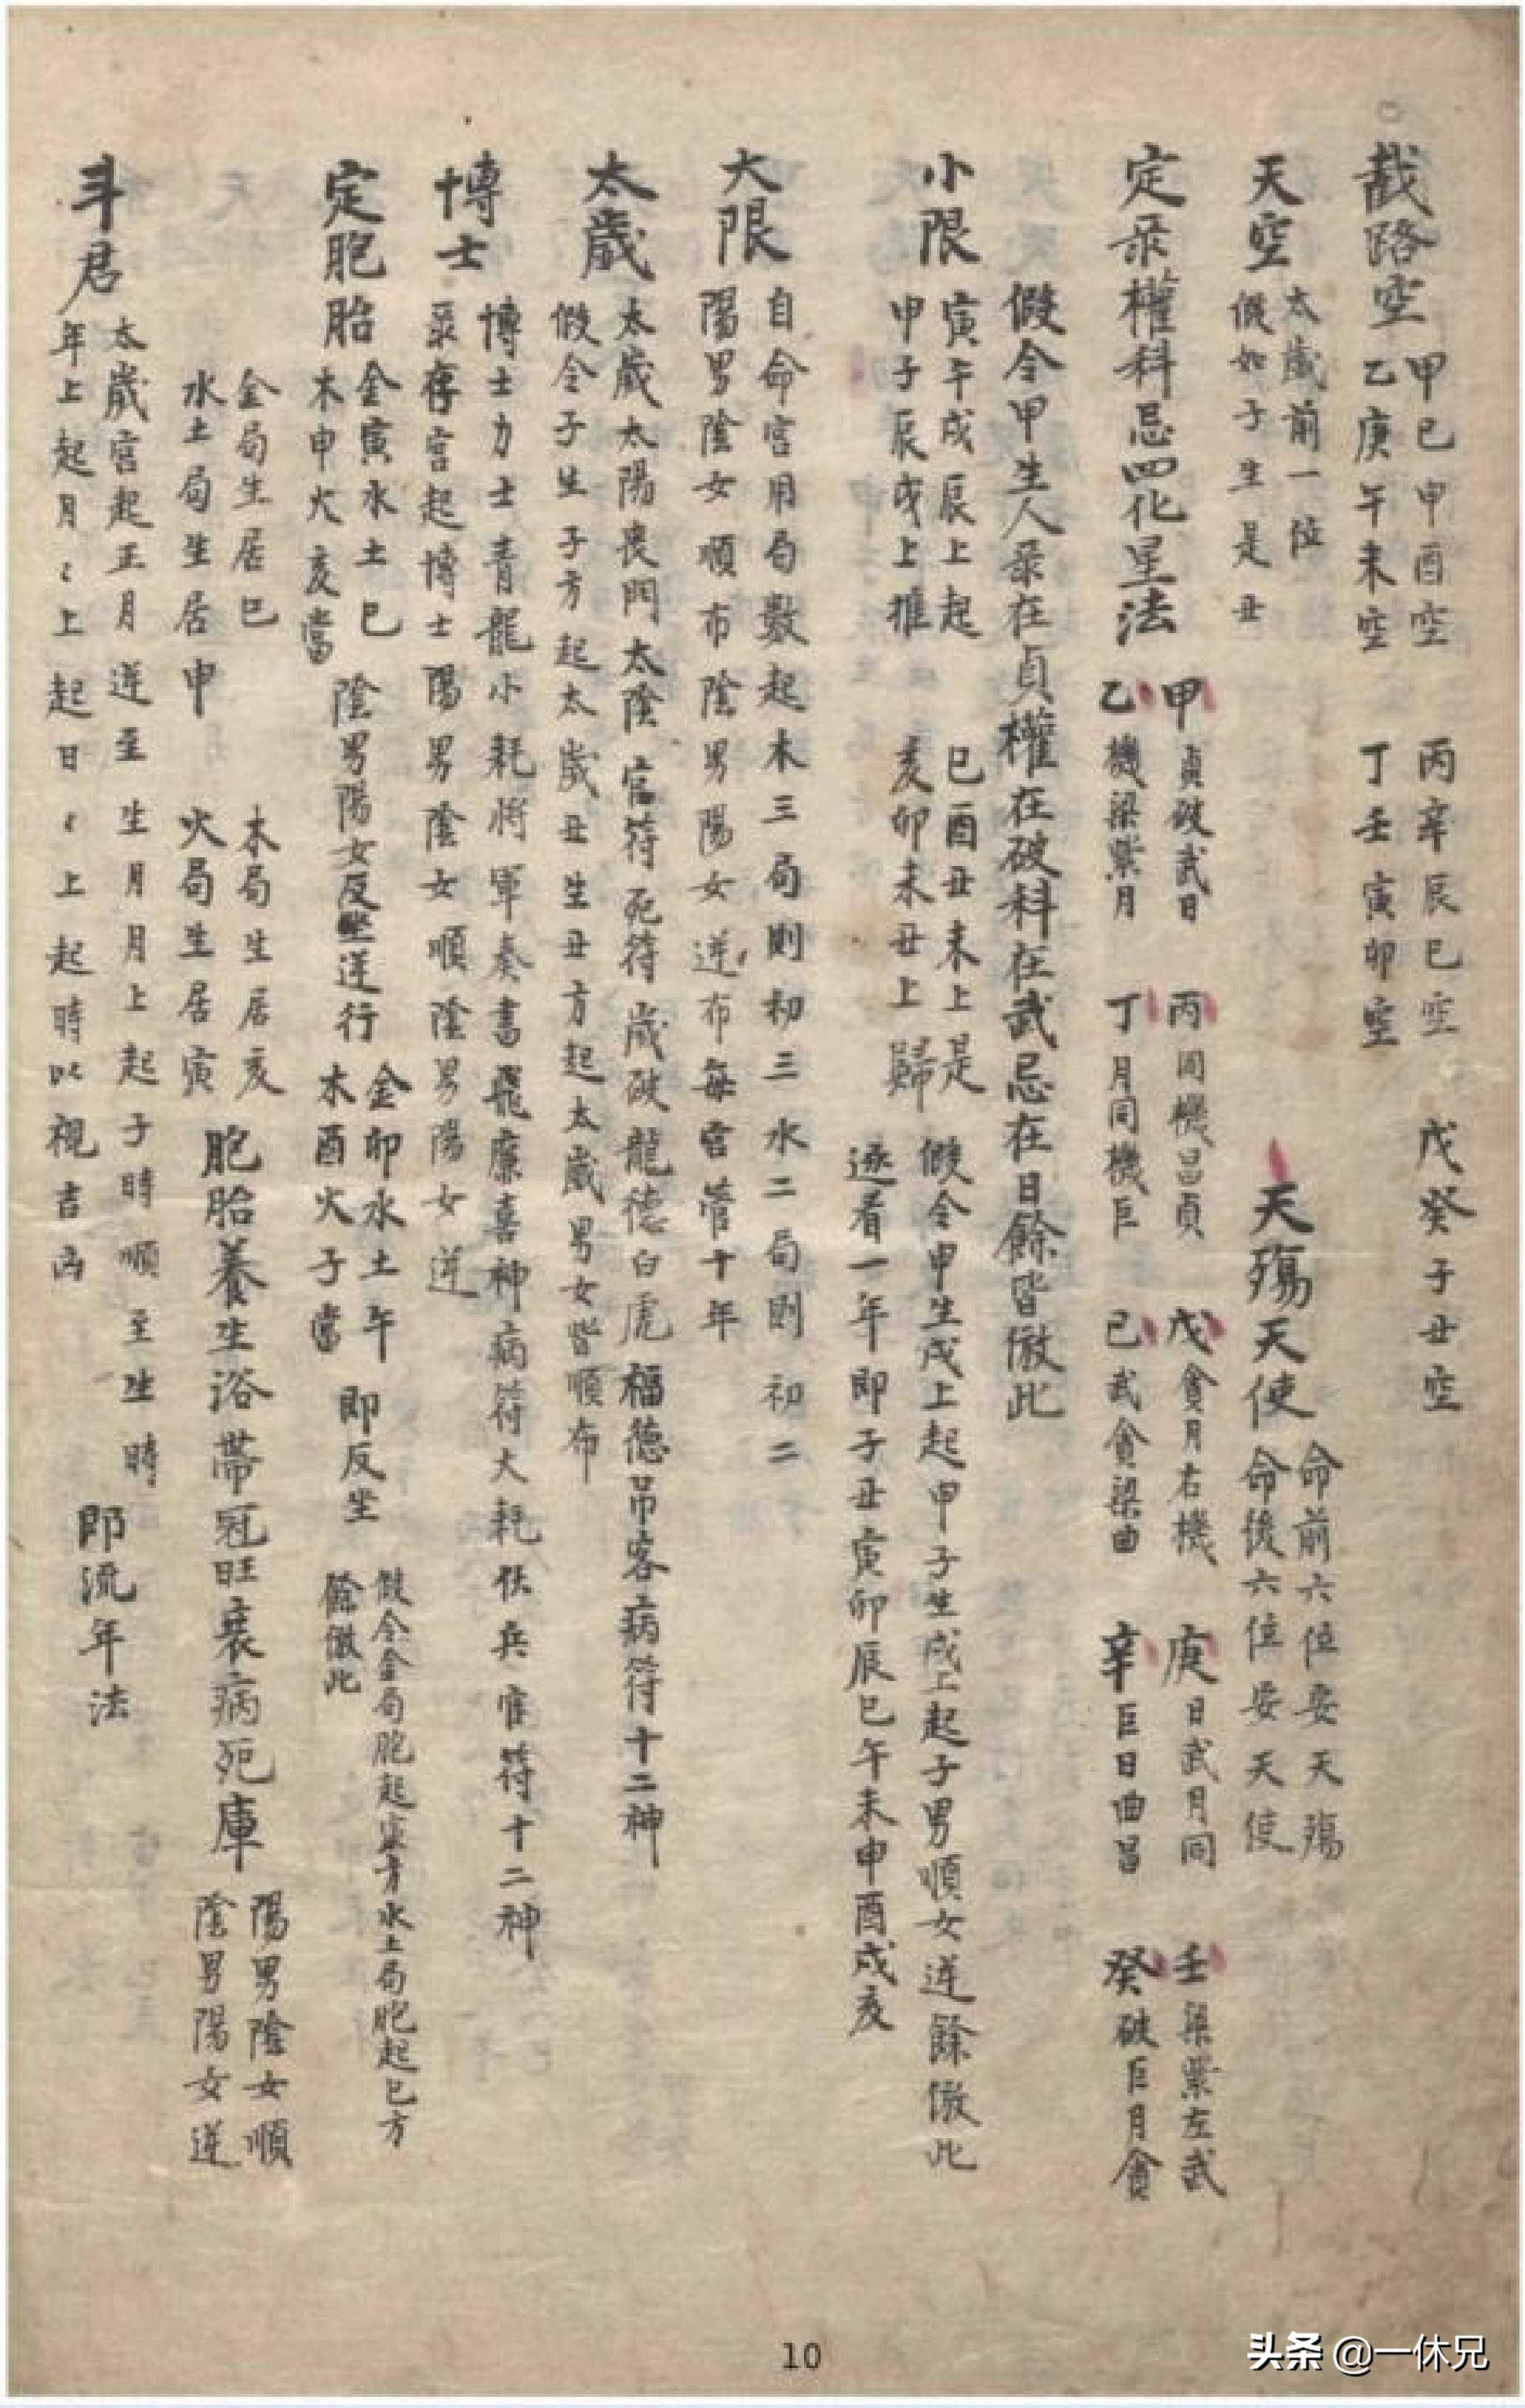 截路空
甲己申酉空 丙辛辰巳空 戊癸子丑空
乙庚午未空 丁壬寅卯空
天空
太歲前一位
假如子生是丑
天殤天使
命前六位安天殤
命後六位安天使
定彔權科忌四化星法
甲貞破武日 丙同機昌貞 戊貪月右機 庚日武月同 壬梁紫左武
乙機梁紫月 丁月同機巨 己武貪梁曲 辛巨日曲昌 癸破巨月貪
假令甲生人彔在貞權在破科在武忌在日餘皆倣此
小限
寅午戌辰上起 巳酉丑未上是
甲子辰戌上推 亥卯未丑上歸
假令甲生戌上起甲子生戌上起子男順女逆餘倣此
逐看一年即子丑寅卯辰巳午未申酉戌亥
大限
自命宮用局數起木三局則初三水二局則初二
陽男陰女順布陰男陽女逆布每宮管十年
太歲
太歲太陽喪門太陰官符死符歲破龍德白虎福德吊客病符十二神
假令子生子方起太歲丑生丑方起太歲男女皆順布
博士
博士力士青龍小耗將軍奏書飛廉喜神病符大耗伏兵官符十二神
彔存宮起博士陽男陰女順陰男陽女逆
定胞胎
金寅水土巳
木申火亥當
陰男陽女反坐逆行
金卯水土午
木酉火子當
即反坐
假令金局胞起寅方水土局胞起巳方
餘倣此
金局生居巳 木局生居亥
水土局生居申 火局生居寅
胞胎養生浴帶冠旺衰病死庫
陽男陰女順
陰男陽女逆
斗君
太歲宮起正月逆至生月月上起子時順至生時
年上起月〻上起日〻上起時以視吉凶
即流年法
10
头条 @一休兄